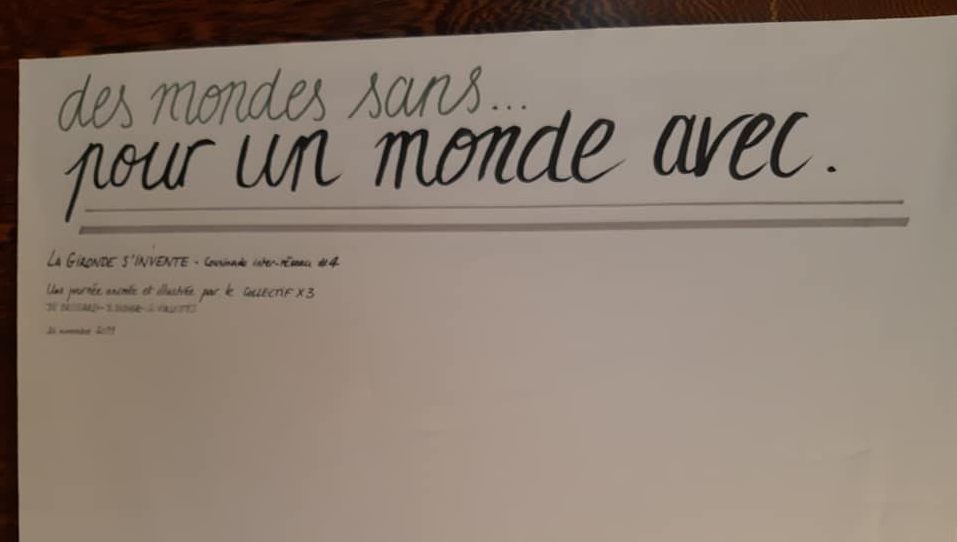 des mondes sans...
pour un monde avec.
LA GIRONDE S'INVENTE - inter-réseau #4
Une journée animée et illustrée par le COLLECTIF X3
novembre